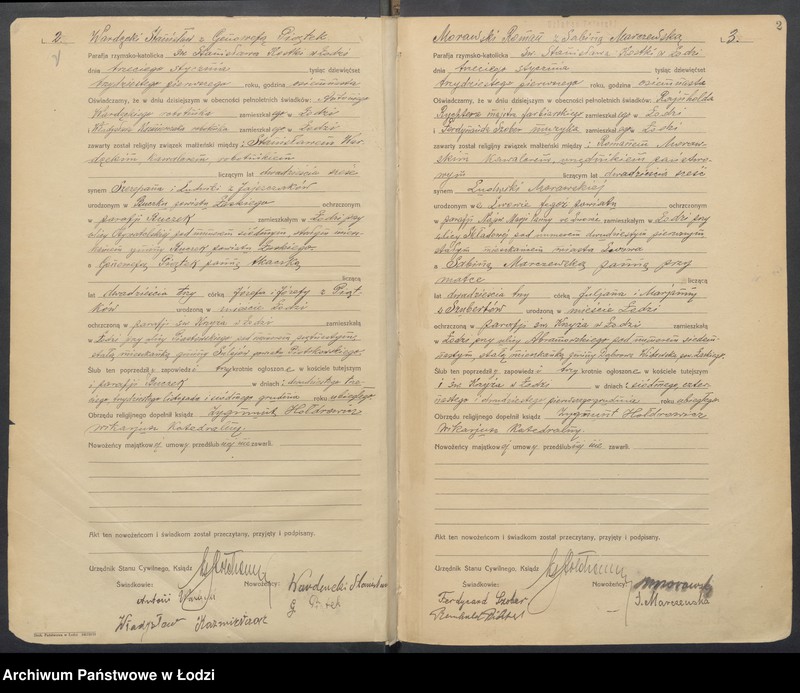 2.
Wardęcki Stanisław z Genowefą Piątek
Parafia rzymsko-katolicka Św. Stanisława Kostki w Łodzi
dnia trzeciego stycznia tysiąc dziewięćset
trzydziestego pierwszego roku, godzina osiemnasta
Oświadczamy, że w dniu dzisiejszym w obecności pełnoletnich świadków: Antoniego
Wardęckiego robotnika zamieszkałego w Łodzi
Władysława robotnika zamieszkałego w Łodzi
zawarty został religijny związek małżeński między: Stanisławem War-
dęckim kawalerem, robotnikiem
liczącym lat dwadzieścia sześć
synem Szczepana i Ludwiki z
urodzonym w Buczku powiatu Łaskiego ochrzczonym
w parafji Buczek zamieszkałym w Łodzi przy
ulicy pod numerem siódmym stałym miesz-
kańcem gminy Buczek powiatu Łaskiego
a Genowefą Piątek panną tkaczką
liczącą
lat dwadzieścia trzy córką Józefa i Józefy z Piąt-
ków urodzoną w mieście Łodzi
ochrzczoną w parafji św. Krzyża w Łodzi zamieszkałą
w Łodzi przy ulicy pod numerem
stałą mieszkanką gminy powiatu Piotrkowskiego
Ślub ten poprzedziły zapowiedzi trzykrotnie ogłoszone w kościele tutejszym
i parafji Buczek w dniach: trzydziestego
listopada i siódmego grudnia roku ubiegłego
Obrzędu religijnego dopełnił ksiądz Zygmunt
wikarjusz Katedralny.
Nowożeńcy majątkowej umowy przedślubnej nie zawarli.
Akt ten nowożeńcom i świadkom został przeczytany, przyjęty i podpisany.
Urzędnik Stanu Cywilnego, Ksiądz
Świadkowie: Nowożeńcy:
Antoni Wardencki Stanisław
G Piątek
Władysław Kaźmierczak
3.
2
Morawski Roman z Sabiną Marczewską
Parafia rzymsko-katolicka Św. Stanisława Kostki w Łodzi
dnia trzeciego stycznia tysiąc dziewięćset
trzydziestego pierwszego roku, godzina osiemnasta
Oświadczamy, że w dniu dzisiejszym w obecności pełnoletnich świadków: Rajnholda
Rychtera majstra farbiarskiego zamieszkałego w Łodzi
Ferdynanda Szober muzyka zamieszkałego w Łodzi
zawarty został religijny związek małżeński między: Romanem Moraw-
skim kawalerem, urzędnikiem państwo-
wym liczącym lat dwadzieścia sześć
synem Ludwiki Morawskiej
urodzonym w Lwowie tegoż powiatu ochrzczonym
w parafji Najśw. Marji Panny we Lwowie zamieszkałym w Łodzi przy
ulicy Składowej pod numerem dwudziestym pierwszym
stałym mieszkańcem miasta Lwowa
a Sabiną Marczewską panną przy
matce liczącą
lat dwadzieścia trzy córką Juljana i Marjanny
z Szubertów urodzoną w mieście Łodzi
ochrzczoną w parafji św. Krzyża w Łodzi zamieszkałą
w Łodzi przy ulicy Abramowskiego pod numerem siedem-
stałą mieszkanką gminy
Ślub ten poprzedziły zapowiedzi trzykrotnie ogłoszone w kościele tutejszym
i św. Krzyża w Łodzi w dniach: siódmego, czter-
nastego i dwudziestego pierwszego grudnia roku ubiegłego
Obrzędu religijnego dopełnił ksiądz Zygmunt
wikarjusz Katedralny.
Nowożeńcy majątkowej umowy przedślubnej nie zawarli.
Akt ten nowożeńcom i świadkom został przeczytany, przyjęty i podpisany.
Urzędnik Stanu Cywilnego, Ksiądz
Świadkowie: Nowożeńcy:
Ferdynand Szober S. Marczewska
Archiwum Państwowe w Łodzi